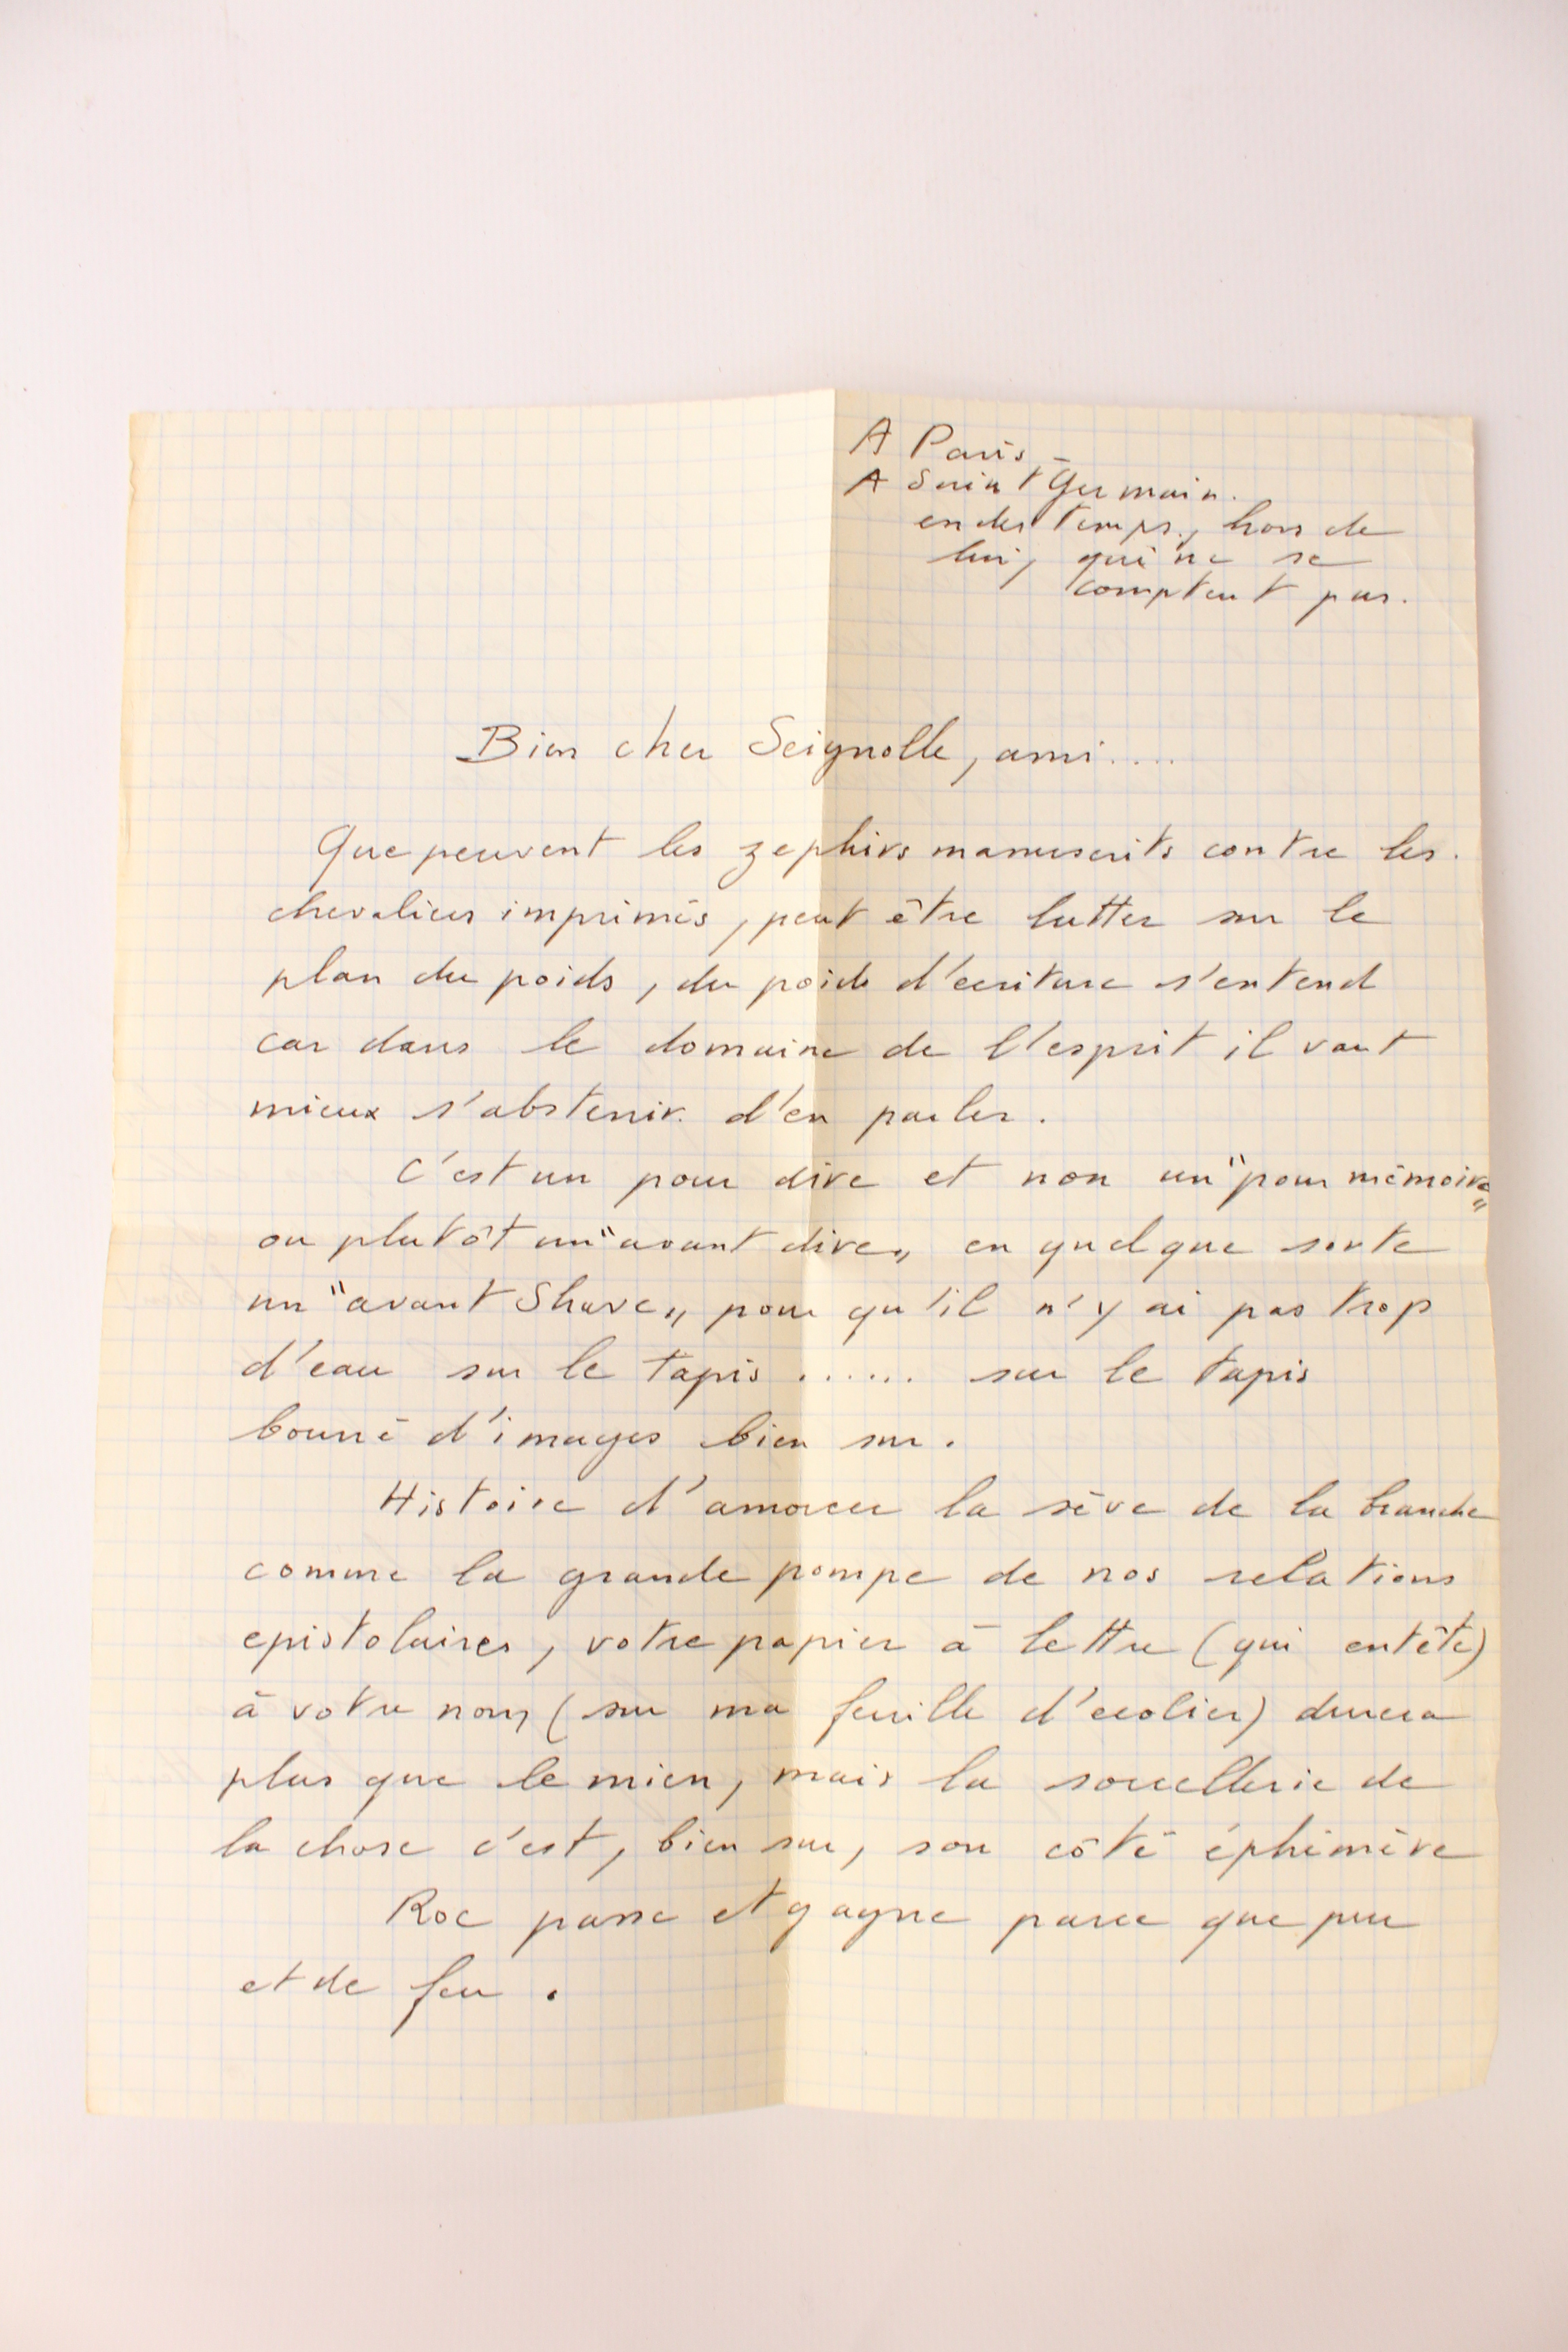 A Paris
A Saint Germain.
en des temps, hors de
lui, qui ne se
comptent pas.
Bien cher Seignolle, ami....
Que peuvent les zephirs manuscrits contre les
chevaliers imprimés, peut être lutter sur le
plan du poids, du poids d'ecriture s'entend
car dans le domaine de l'esprit il vaut
mieux s'abstenir d'en parler.
C'est un pour dire et non un "pour mémoire"
ou plutôt un "avant dire" en quelque sorte
un "avant Shave" pour qu'il n'y ai pas trop
d'eau sur le tapis ...... sur le tapis
bourré d'images bien sur.
Histoire d'amorcer la sève de la branche
comme la grande pompe de nos relations
epistolaires, votre papier à lettre (qui entête)
à votre nom (sur ma feuille d'ecolier) durera
plus que le mien, mais la sorcellerie de
la chose c'est, bien sur, son côté éphémère
Roc passe et gagne parce que pur
et de feu.